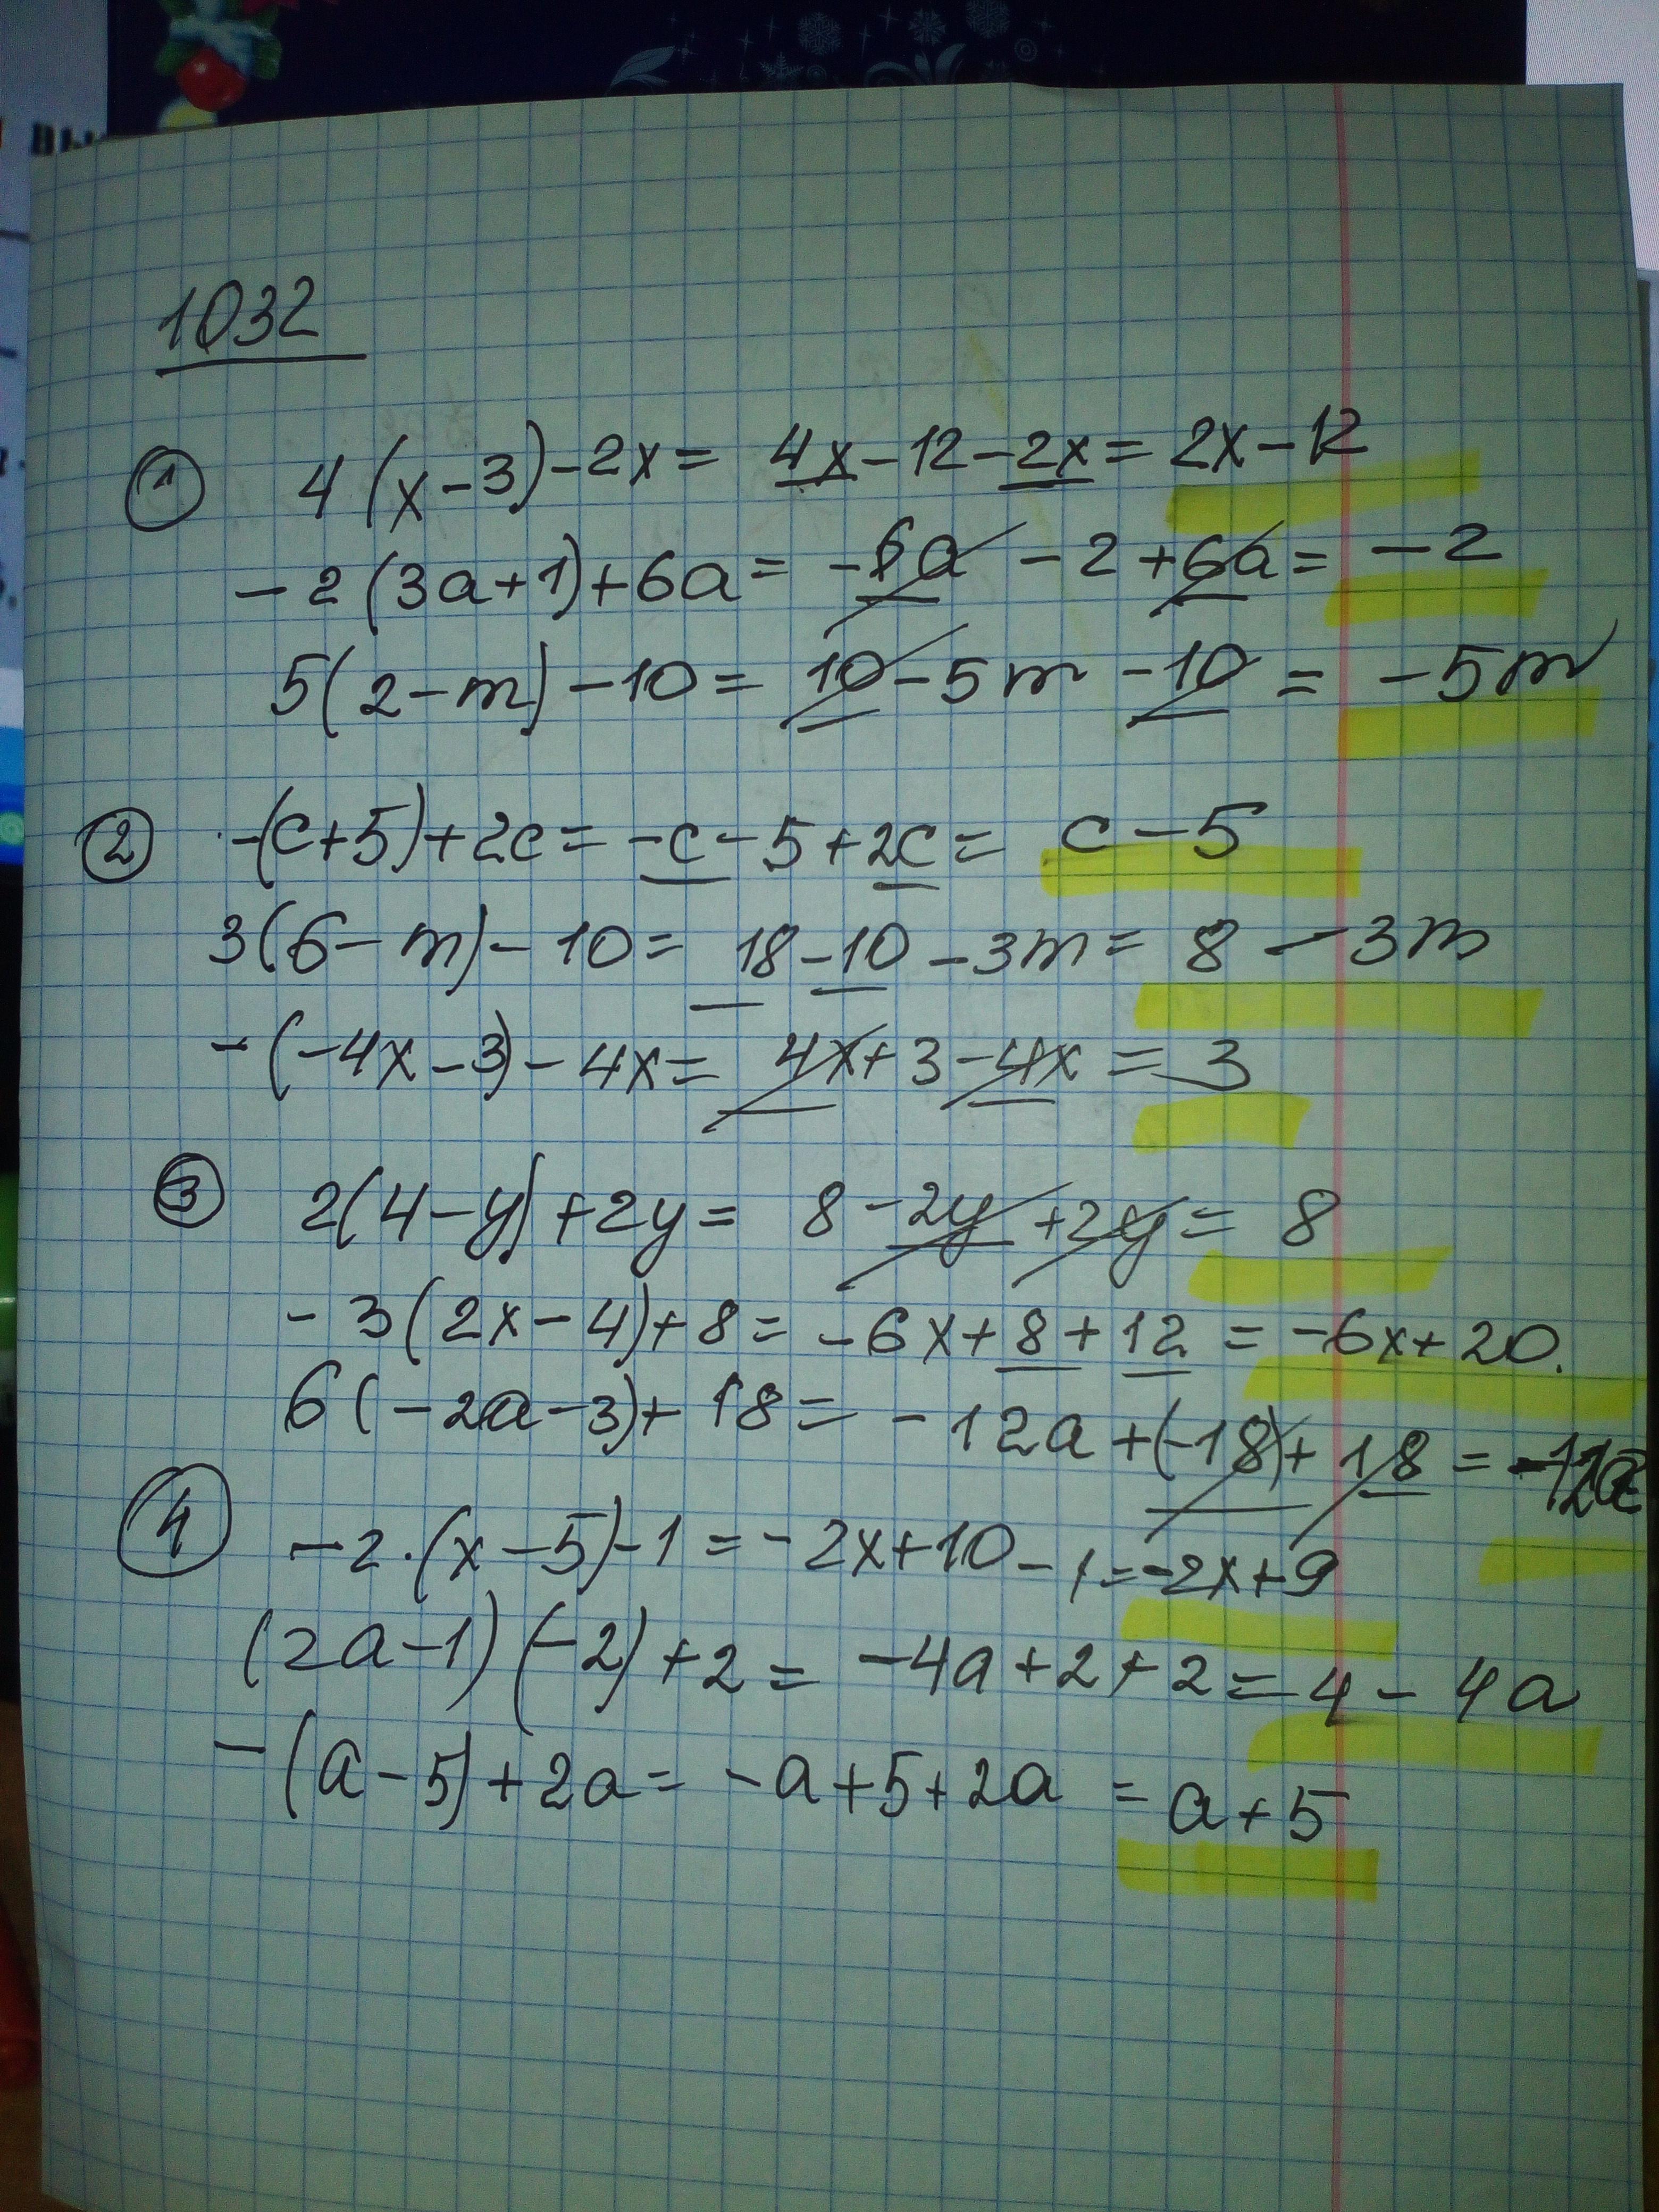 вы
1032
1 4(x-3)-2x= 4x-12-2x=2x-12
-2(3a+1)+6a= -6a -2+6a= -2
5(2-m)-10= 10-5m-10= -5m
2 -(c+5)+2c= -c-5+2c= c-5
3(6-m)-10= 18-10-3m= 8-3m
-(-4x-3)-4x= 4x+3-4x=3
3 2(4-y)+2y= 8-2y+2y= 8
-3(2x-4)+8= -6x+8+12= -6x+20.
6(-2a-3)+18= -12a+(-18)+18= -12a
4 -2·(x-5)-1=-2x+10-1=-2x+9
(2a-1)(-2)+2= -4a+2+2=4-4a
-(a-5)+2a= -a+5+2a = a+5